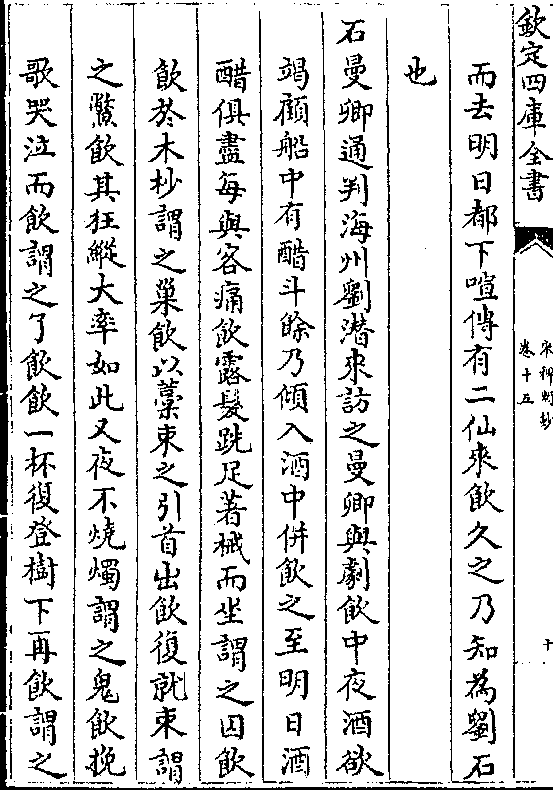 欽定四庫全書
宋稗類鈔
卷十五
十
而去明日都下喧傳有二仙來飲久之乃知為劉石
也
石曼卿通判海州劉潛來訪之曼卿與劇飲中夜酒欲
竭顧船中有醋斗餘乃傾入酒中併飲之至明日酒
醋俱盡每與客痛飲露髮跣足著械而坐謂之囚飲
飲於木杪謂之巢飲以藁束之引首出飲復就束謂
之鱉飲其狂縱大率如此又夜不燒燭謂之鬼飲挽
歌哭泣而飲謂之了飲飲一杯復登樹下再飲謂之